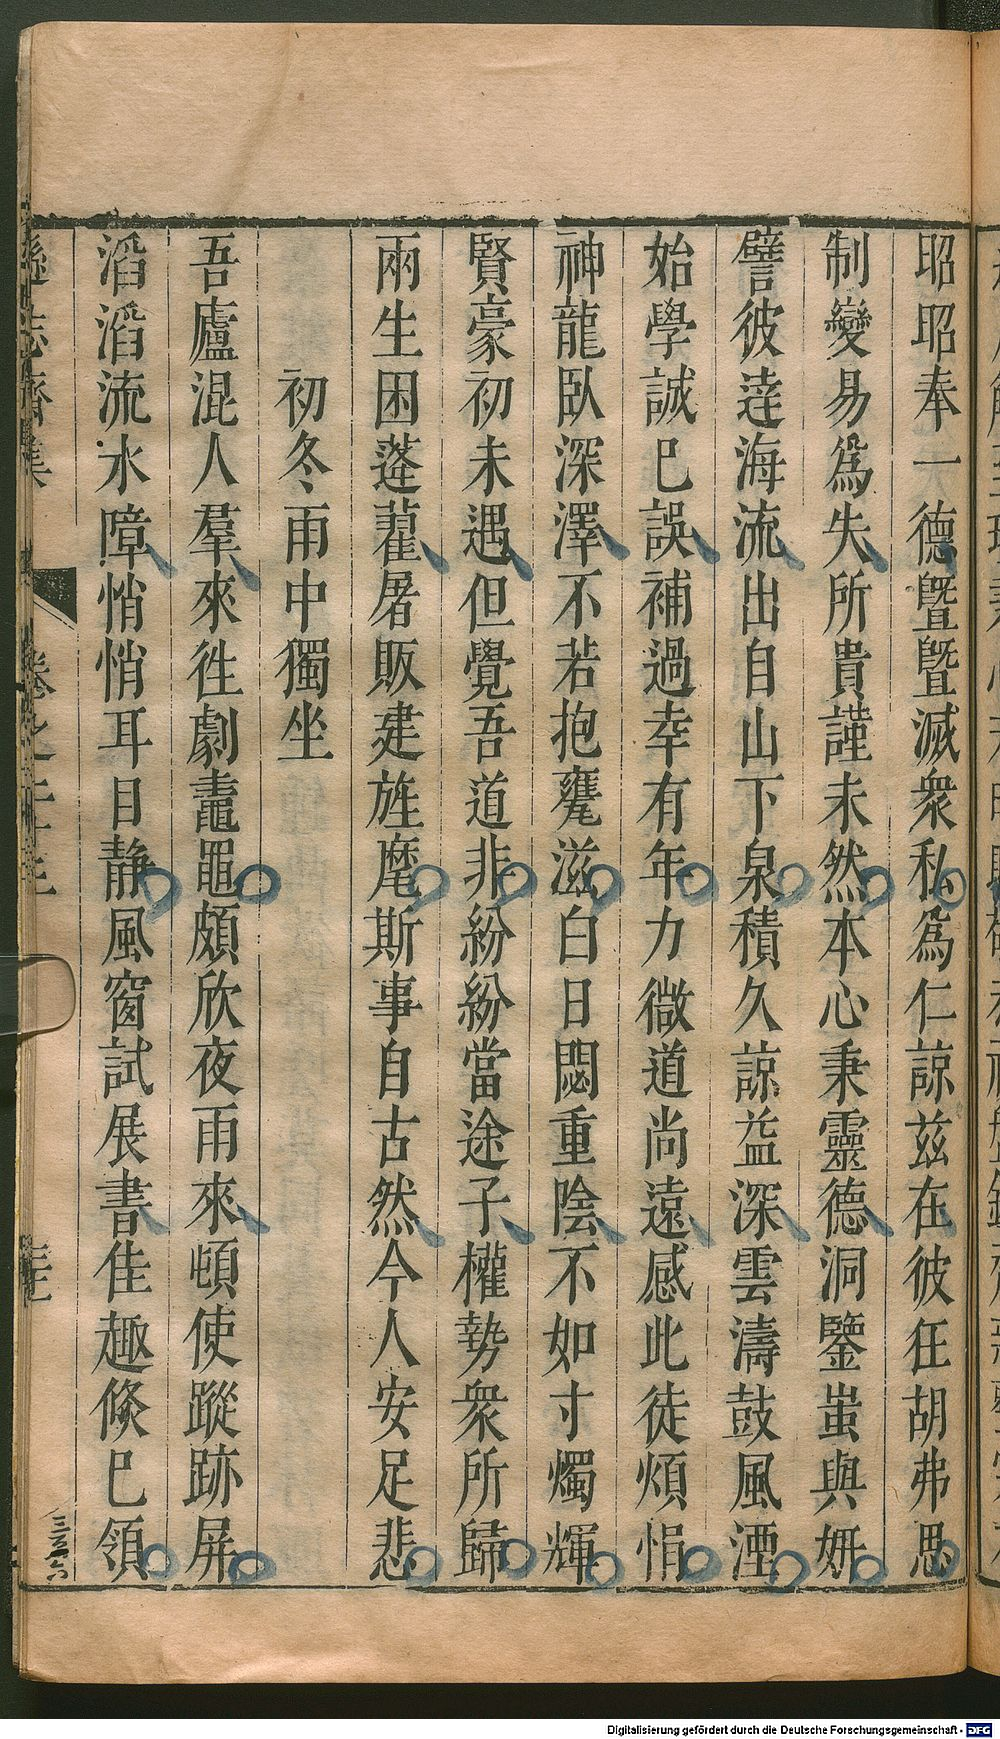 昭昭奉一德曁曁滅衆私爲仁諒兹在彼任胡弗思
制變易爲失所貴謹未然本心秉靈德洞鑒蚩與妍
譬彼逹海流出自山下泉積久諒益深雲濤鼓風湮
始學誠已誤補過幸有年力微道尚遠感此徒煩悁
神龍臥深澤不若抱甕滋白日閟重陰不如寸燭輝
賢豪初未遇但覺吾道非紛紛當途子權勢衆所歸
兩生困蓬藋屠販建旌麾斯事自古然今人安足悲
初冬雨中獨坐
吾廬混人羣來徃劇鼃黽頗欣夜雨來頓使蹤跡屏
滔滔流水障悄悄耳目静風窗試展書佳趣倐已領
遜志齋集 卷之二十三
Digitalisierung gefördert durch die Deutsche Forschungsgemeinschaft - DFG